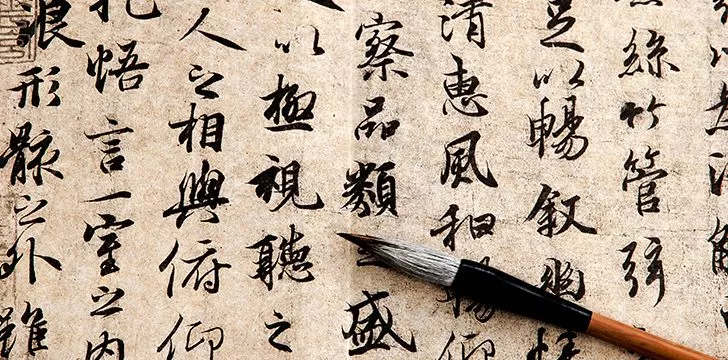 絲竹管弦
足以暢叙幽情
清惠風和暢仰
察品類之盛
以極視聽之
人之相與俯仰
悟言一室之内
浪形骸之外雖